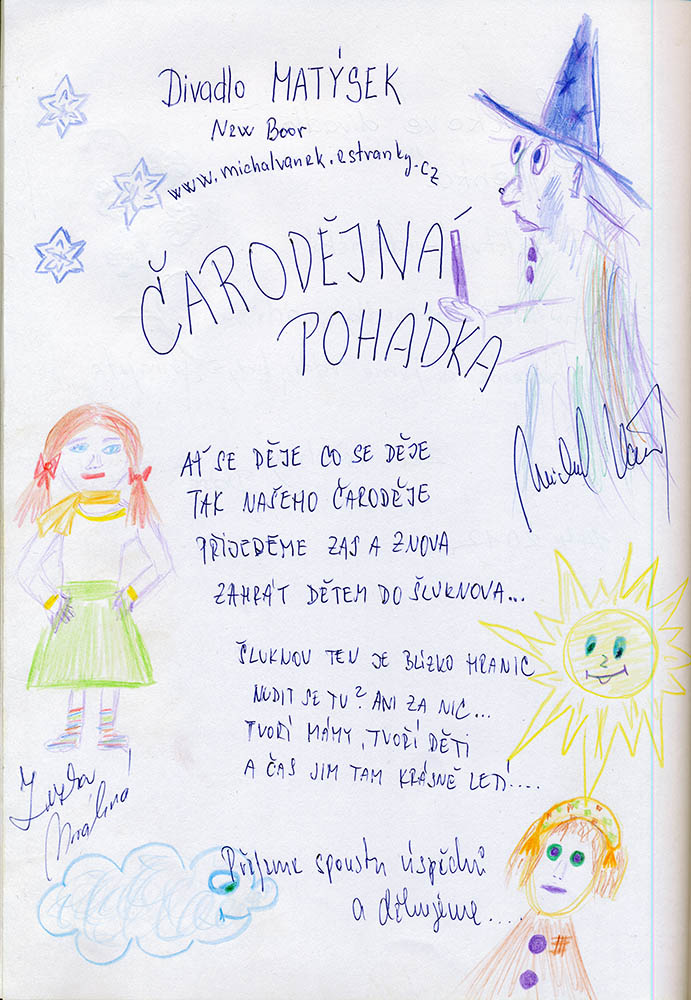 Divadlo MATÝSEK
New Boor
www.michalvanek.estranky.cz
ČARODĚJNÁ
POHÁDKA
AŤ SE DĚJE CO SE DĚJE
TAK NAŠEHO ČARODĚJE
PŘIJEDEME ZAS A ZNOVA
ZAHRÁT DĚTEM DO ŠLUKNOVA...
ŠLUKNOV TEN JE BLÍZKO HRANIC
NUDIT SE TU? ANI ZA NIC...
TVOŘÍ MÁMY, TVOŘÍ DĚTI
A ČAS JIM TAM KRÁSNĚ LETÍ....
Přejeme spoustu úspěchů
a děkujeme....